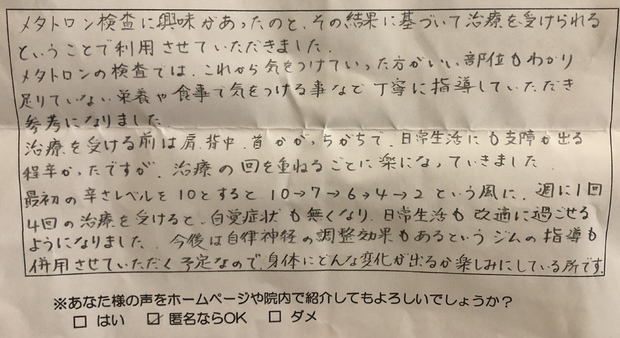 メタトロン検査に興味があったのと、その結果に基づいて治療を受けられる
ということで利用させていただきました。
メタトロンの検査では、これから気をつけていった方がいい部位もわかり
足りていない栄養や食事で気をつける事など丁寧に指導していただき
参考になりました。
治療を受ける前は肩、背中、首がガッチガチで、日常生活にも支障が出る
程辛かったですが、治療の回を重ねるごとに楽になっていきました
最初の辛さレベルを10とすると 10→7→6→4→2 という風に、週に1回
4回の治療を受けると、自覚症状も無くなり、日常生活も改適に過ごせる
ようになりました。今後は自律神経の調整効果もあるというジムの指導も
併用させていただく予定なので、身体にどんな変化が出るか楽しみにしている所です。
※あなた様の声をホームページや院内で紹介してもよろしいでしょうか？
□ はい ☑ 匿名ならOK □ ダメ